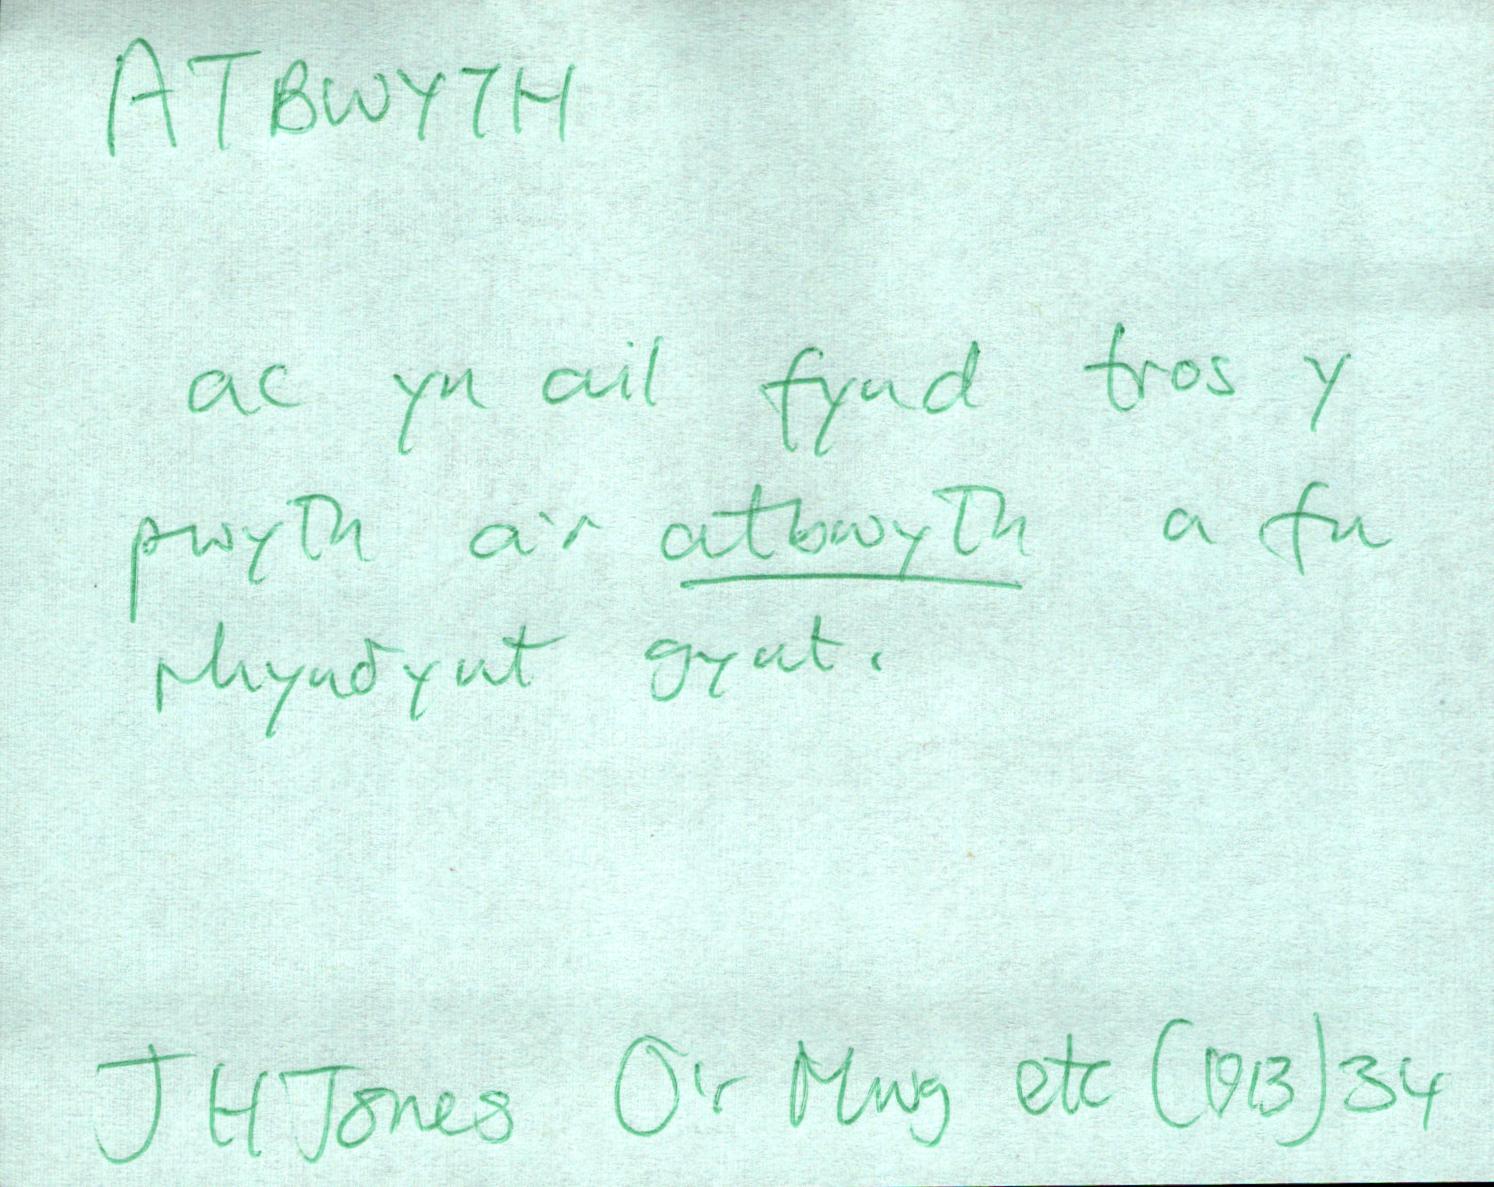 ATBWYTH
ac yn ail fynd tros y
pwyth a'r atbwyth a fu
rhyndynt gynt.
J H Jones O'r Mwg etc (1913) 34